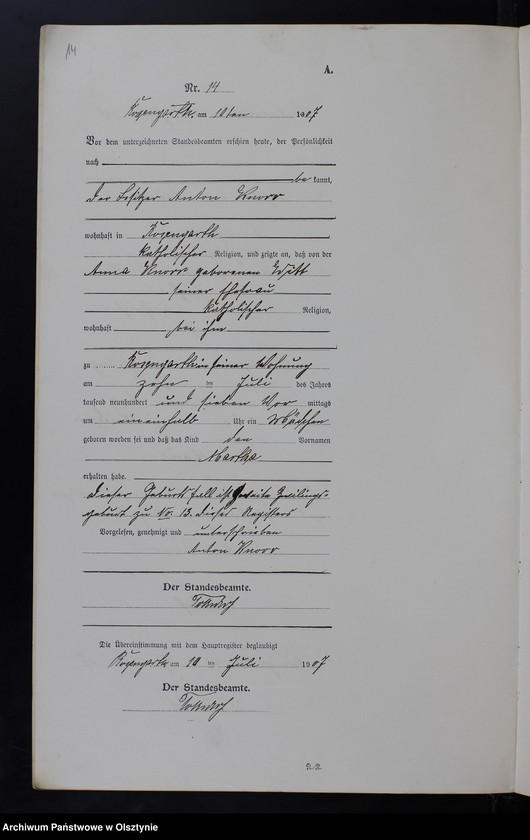 14
A.
Nr. 14
Rosengarth am 10ten 1907
Vor dem unterzeichneten Standesbeamten erschien heute, der Persönlichkeit
nach
be kannt,
der Besitzer Anton Knorr
wohnhaft in Rosengarth
katholischer Religion, und zeigte an, daß von der
Anna Knorr geborenen Witt
seiner Ehefrau
katholischer Religion,
wohnhaft bei ihm
zu Rosengarth in seiner Wohnung
am zehn ten Juli des Jahres
tausend neunhundert und sieben Vor mittags
um ein einhalb Uhr ein Mädchen
geboren worden sei und daß das Kind den Vornamen
Martha
erhalten habe.
Dieser Geburtsfall ist zweite Zwilings-
geburt zu Nr. 13. dieses Registers
Vorgelesen, genehmigt und unterschrieben
Anton Knorr
Der Standesbeamte.
Die Übereinstimmung mit dem Hauptregister beglaubigt
Rosengarth am 10 ten Juli 1907
Der Standesbeamte.
Archiwum Państwowe w Olsztynie